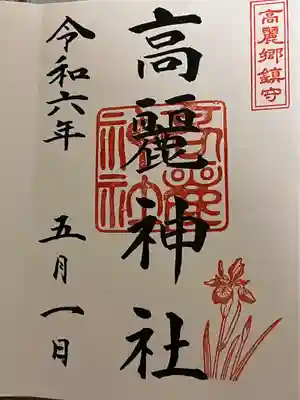 高麗郷鎮守
高麗神社
高麗神社
令和六年 五月一日